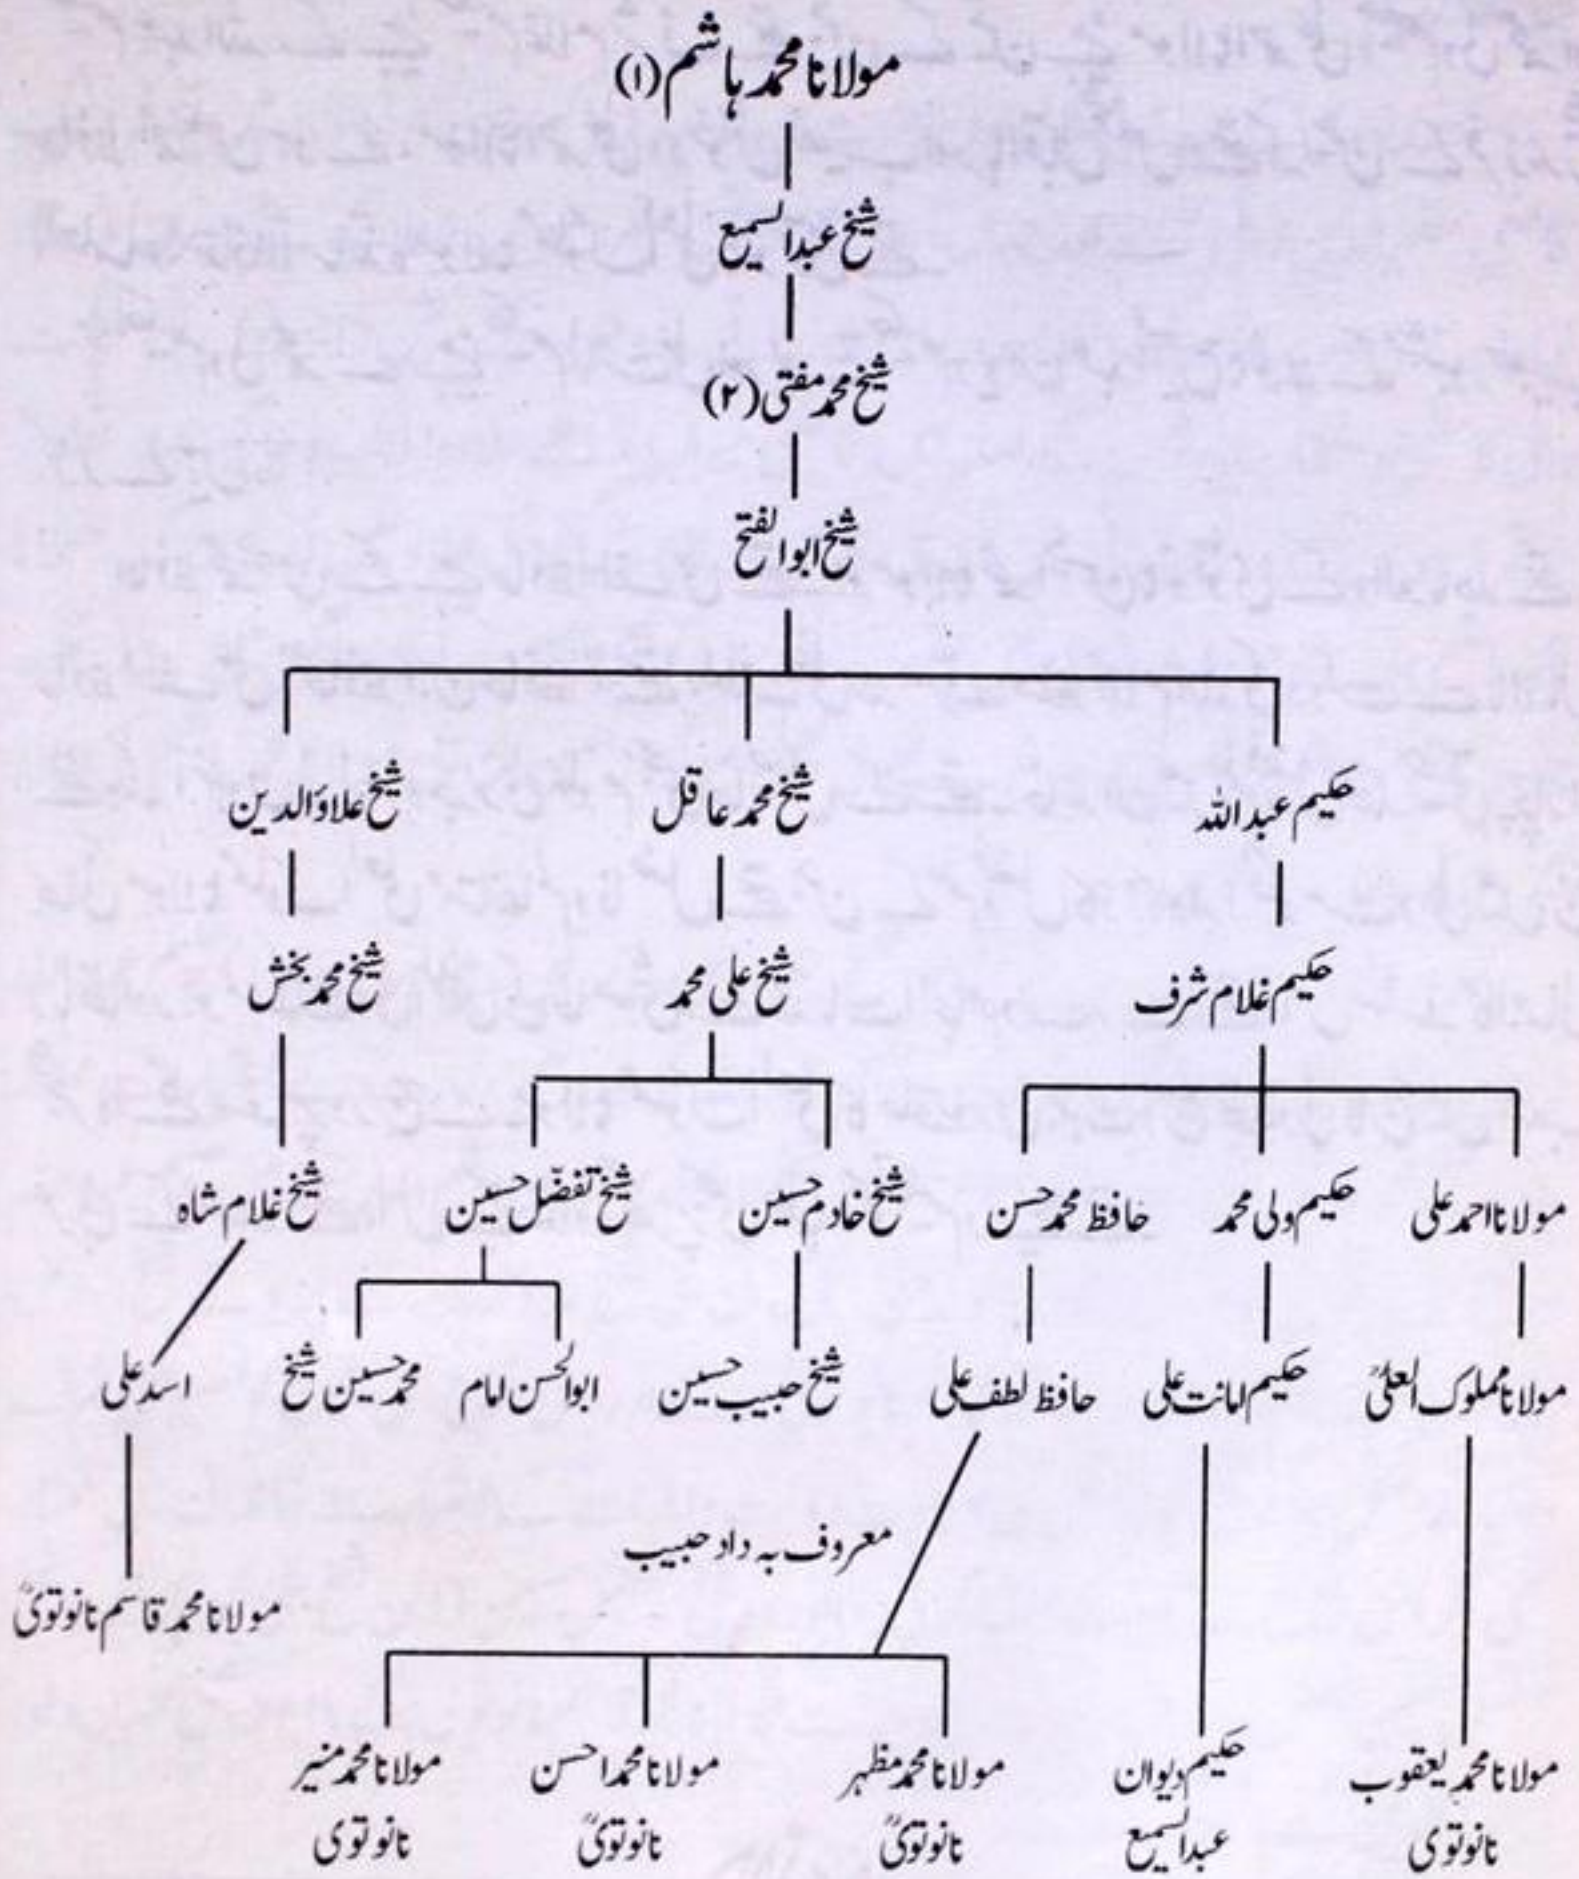 مولانا محمد ہاشم (۱)
شیخ عبدالسمیع
شیخ محمد مفتی (۲)
شیخ ابوالفتح
حکیم عبداللہ
شیخ محمد عاقل
شیخ علاؤالدین
حکیم غلام شرف
شیخ علی محمد
شیخ محمد بخش
مولانا احمد علی
حکیم ولی محمد
حافظ محمد حسن
شیخ خادم حسین
شیخ تفضّل حسین
شیخ غلام شاہ
مولانا مملوک العلیؒ
حکیم امانت علی
حافظ لطف علی
شیخ حبیب حسین
ابوالحسن امام
محمد حسین شیخ
اسد علی
معروف بہ داد حبیب
مولانا محمد قاسم نانوتویؒ
مولانا محمد یعقوب
نانوتوی
حکیم دیوان
عبدالسمیع
مولانا محمد مظہر
نانوتویؒ
مولانا محمد احسن
نانوتویؒ
مولانا محمد منیر
نانوتوی